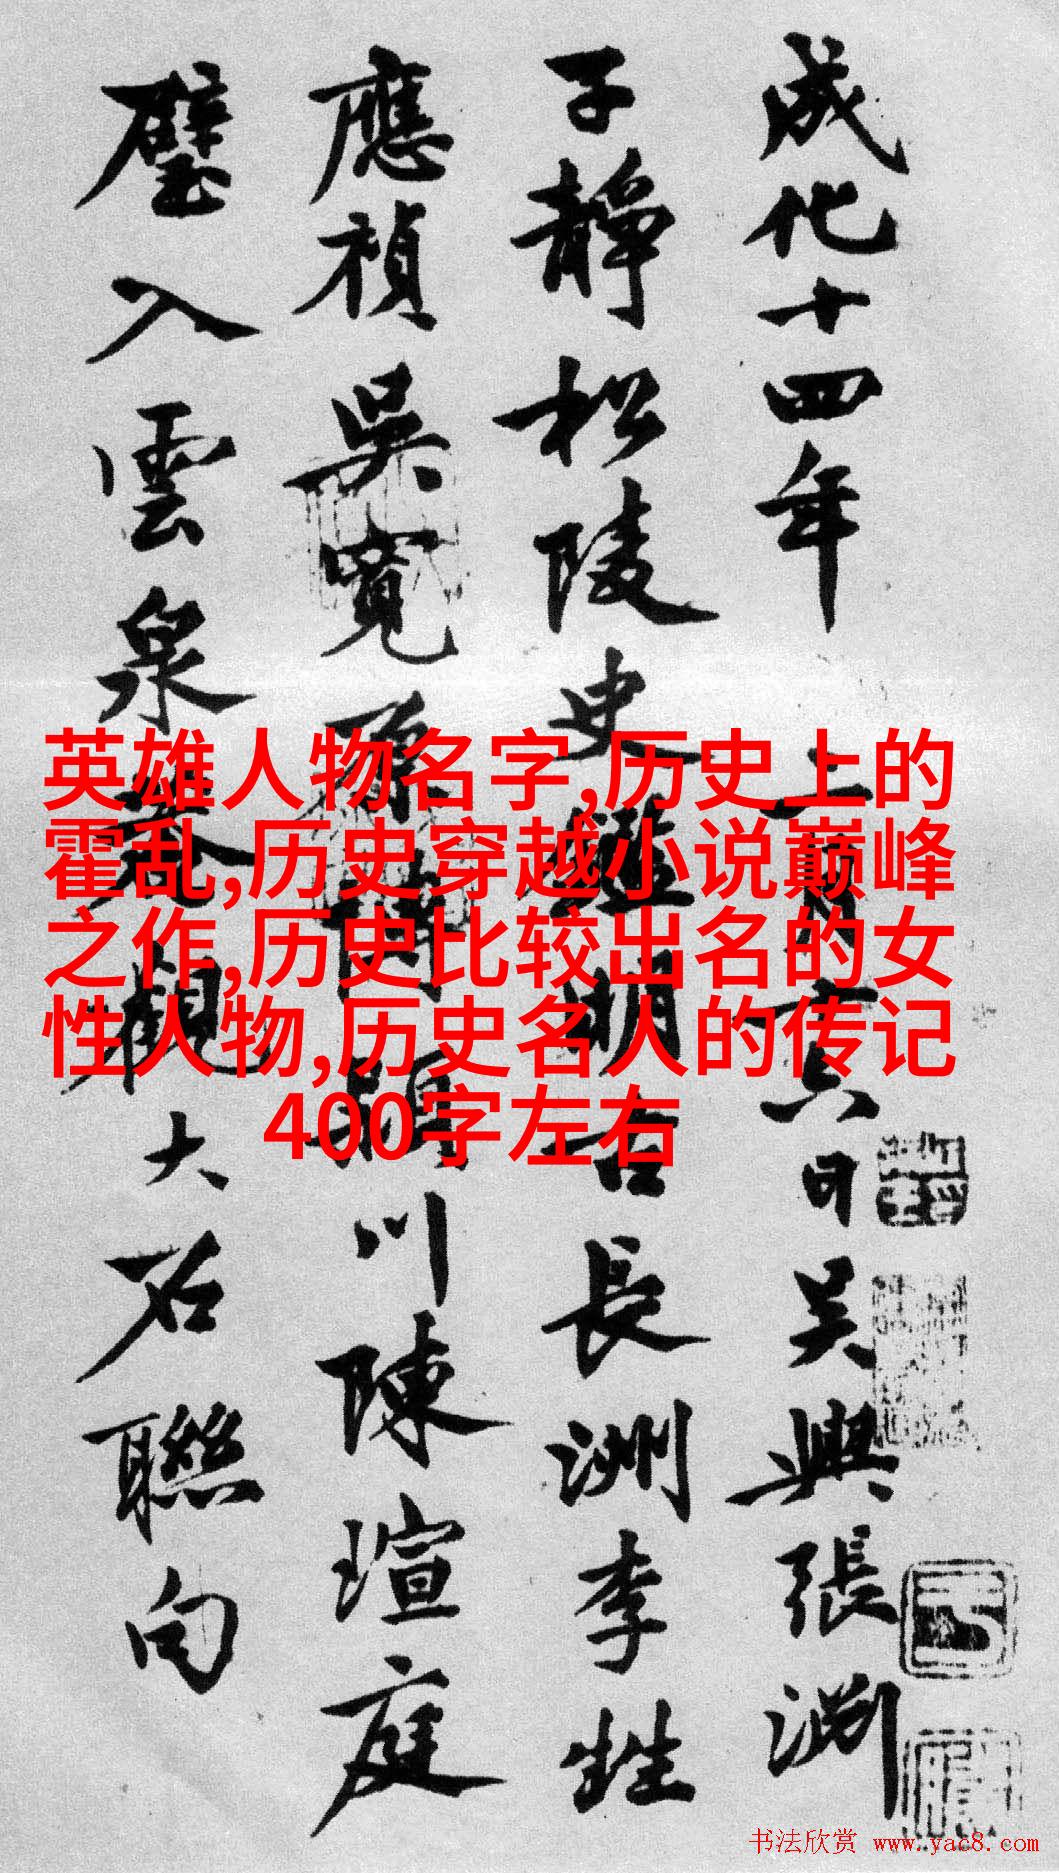 成化十四年二月六日吴興張淵
子静松陵史鑑明古長洲李甡
應禎吳寬原博潁川陳瑄庭
璧入雲泉菴觀大石聯句
英雄人物名字,历史上的
霍乱,历史穿越小说巅峰
之作,历史比较出名的女
性人物,历史名人的传记
400字左右
书法欣赏 www.yac8.com